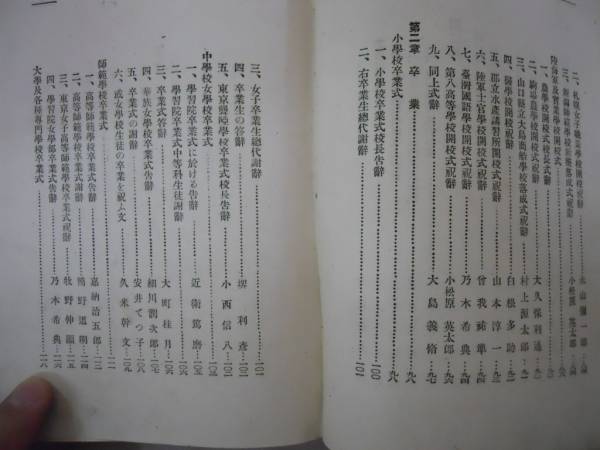 二、札幌女子職業學校開校式祝辭
小松原英太郎
陸海軍及實業學校開校式
一、農學校開校式祝辭
二、駒場農學校開校式祝辭 大久保利通
三、山口縣立大島商船學校落成式祝辭 村上源太郎
四、醫學校開校式祝辭 白根多助
五、郡立水產講習所開校式祝辭 山本淳一 九三
六、陸軍士官學校開校式祝辭 曾我祐準 九四
七、臺灣國語學校開校式祝辭 乃木希典 九四
八、第八高等學校開校式祝辭 小松原英太郎 九六
九、同上式辭 大島義脩 九七
第二章 卒業
小學校卒業式 九八
一、小學校卒業式校長告辭 一〇〇
二、右卒業生總代謝辭 一〇一
三、女子卒業生總代謝辭 一〇一
四、卒業生の答辭 堺利彥 一〇二
五、東京聾啞學校卒業式校長告辭 小西信八 一〇二
中學校女學校卒業式
一、學習院卒業式に於ける告辭 近衞篤麿 一〇三
二、學習院卒業式中等科生徒謝辭 一〇五
三、卒業式答辭 大町桂月 一〇六
四、華族女學校卒業式告辭 細川潤次郎
五、卒業式の謝辭 安井てつ子
六、或女學校生徒の卒業を祝ふ文 久米幹文
師範學校卒業式
一、高等師範學校卒業式告辭 嘉納治五郎
二、高等師範學校卒業式謝辭 鴨野道明
三、東京女子高等師範學校卒業式祝辭 牧野伸顯
四、學習院女學部卒業式告辭 乃木希典
大學及各種專門學校卒業式 一一八